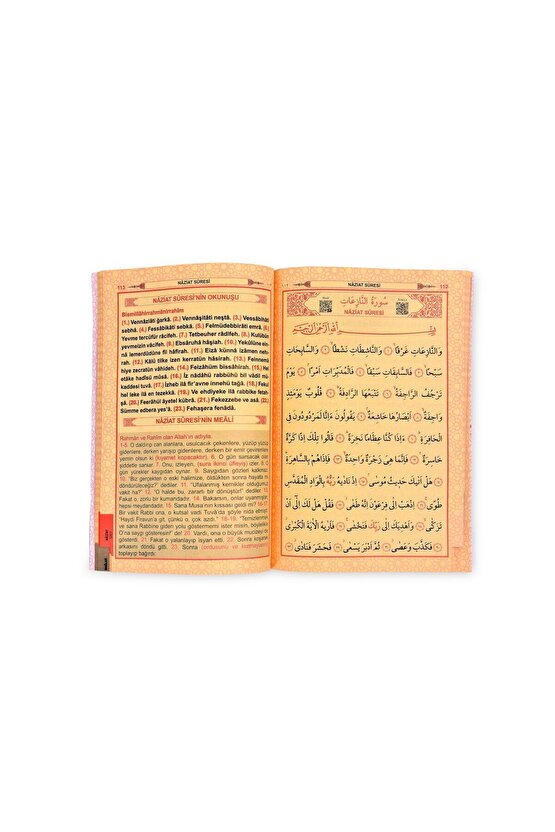 112
NÂZİAT SÛRESİ
سُورَةُ النَّازِعَاتِ
NÂZİAT SÛRESİ
بِسْمِ اللّٰهِ الرَّحْمٰنِ الرَّحِيمِ
وَالنَّازِعَاتِ غَرْقًا ﴿١﴾ وَالنَّاشِطَاتِ نَشْطًا ﴿٢﴾ وَالسَّابِحَاتِ
سَبْحًا ﴿٣﴾ فَالسَّابِقَاتِ سَبْقًا ﴿٤﴾ فَالْمُدَبِّرَاتِ اَمْرًا ﴿٥﴾ يَوْمَ
تَرْجُفُ الرَّاجِفَةُ ﴿٦﴾ تَتْبَعُهَا الرَّادِفَةُ ﴿٧﴾ قُلُوبٌ يَوْمَئِذٍ
وَاجِفَةٌ ﴿٨﴾ اَبْصَارُهَا خَاشِعَةٌ ﴿٩﴾ يَقُولُونَ ءَاِنَّا لَمَرْدُودُونَ فِي
الْحَافِرَةِ ﴿١٠﴾ ءَاِذَا كُنَّا عِظَامًا نَخِرَةً ﴿١١﴾ قَالُوا تِلْكَ اِذًا كَرَّةٌ
خَاسِرَةٌ ﴿١٢﴾ فَاِنَّمَا هِيَ زَجْرَةٌ وَاحِدَةٌ ﴿١٣﴾ فَاِذَا هُمْ بِالسَّاهِرَةِ
﴿١٤﴾ هَلْ اَتٰيكَ حَدِيثُ مُوسٰى ﴿١٥﴾ اِذْ نَادٰيهُ رَبُّهُ بِالْوَادِ الْمُقَدَّسِ
طُوًى ﴿١٦﴾ اِذْهَبْ اِلٰى فِرْعَوْنَ اِنَّهُ طَغٰى ﴿١٧﴾ فَقُلْ هَلْ لَكَ اِلٰى اَنْ
تَزَكّٰى ﴿١٨﴾ وَاَهْدِيَكَ اِلٰى رَبِّكَ فَتَخْشٰى ﴿١٩﴾ فَاَرٰيهُ الْاٰيَةَ الْكُبْرٰى
﴿٢٠﴾ فَكَذَّبَ وَعَصٰى ﴿٢١﴾ ثُمَّ اَدْبَرَ يَسْعٰى ﴿٢٢﴾ فَحَشَرَ فَنَادٰى ﴿٢٣﴾
113
NÂZİAT SÛRESİ
NÂZİAT SÛRESİ'NİN OKUNUŞU
Bismillâhirrahmânirrahîm
(1.) Vennâziâti ğarkâ. (2.) Vennâşitâti neştâ. (3.) Vessâbihâti
sebhâ. (4.) Fessâbikâti sebkâ. (5.) Felmüdebbirâti emrâ. (6.)
Yevme tercüfür râcifeh. (7.) Tetbeuher râdifeh. (8.) Kulûbüy
yevmeizin vâcifeh. (9.) Ebsâruhâ hâşiah. (10.) Yekûlûne ein-
nâ lemerdûdûne fil hâfirah. (11.) Eizâ künnâ izâmen neh-
rah. (12.) Kâlû tilke izen kerratün hâsirah. (13.) Feinnemâ
hiye zecratün vâhideh. (14.) Feizâhüm bissâhirah. (15.) Hel
etâke hadîsü mûsâ. (16.) İz nâdâhü rabbühû bil vâdil mü-
kaddesi tuvâ. (17.) İzheb ilâ fir'avne innehû tağâ. (18.) Fekul
hel leke ilâ en tezekkâ. (19.) Ve ehdiyeke ilâ rabbike fetah-
şâ. (20.) Feerâhül âyetel kübrâ. (21.) Fekezzebe ve asâ. (22.)
Sümme edbera yes'â. (23.) Fehaşera fenâdâ.
NÂZİAT SÛRESİ'NİN MEÂLİ
Rahmân ve Rahîm olan Allah'ın adıyla.
1-5. O daldırıp can alanlara, usulcacık çekenlere, yüzüp yüzüp
gidenlere, derken yarışıp geçenlere, derken bir emir çevirenlere
yemin olsun ki (kıyamet kopacaktır). 6. O gün sarsacak olan
şiddetle sarsar. 7. Onu, izleyen, (sura ikinci üfleyiş) izler. 8. O
gün yürekler kaygıdan oynar. 9. Saygıdan gözleri kalkmaz.
10. "Biz gerçekten o eski halimize, öldükten sonra hayata mı
döndürüleceğiz?" dediler. 11. "Ufalanmış kemikler olduğumuz
vakit ha?" 12. "O halde bu, zararlı bir dönüştür!" dediler. 13.
Fakat o, zorlu bir kumandadır. 14. Bakarsın, onlar uyanıktır,
hepsi meydandadır. 15. Sana Musa'nın kıssası geldi ya? 16-17.
Bir vakit Rabbi ona, o kutsal vadi Tuvâ'da şöyle nida etmişti:
"Haydi Firavun'a git, çünkü o, çok azdı." 18-19. "Temizlenmek
ve sana Rabbine giden yolu göstermemi ister misin, böylelikle
O'na saygı gösterirsin" de! 20. Vardı, ona o büyük mucizeyi de
gösterdi. 21. Fakat o yalanlayıp isyan etti. 22. Sonra koşarak
arkasını döndü gitti. 23. Sonra (ordusunu ve kuvmayı)
toplayıp bağırdı.